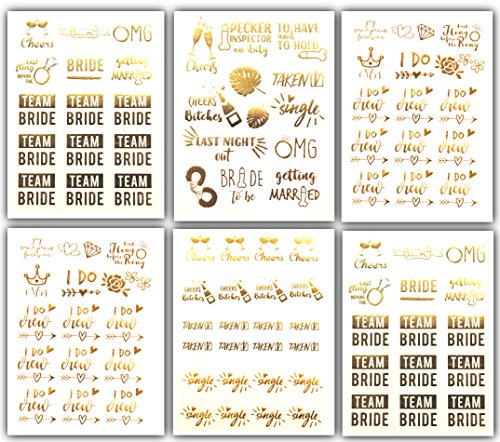 Cheers
OMG
last
fling
BEFORE THE
BRIDE
getting
MARRIED
TEAM TEAM TEAM
BRIDE BRIDE BRIDE
TEAM TEAM TEAM
BRIDE BRIDE BRIDE
TEAM TEAM TEAM
BRIDE BRIDE BRIDE
Cheers
PECKER
INSPECTOR
on duty
TO HAVE
and
TO HOLD
TAKEN
CHEERS
Bitches
single
LAST NIGHT
out
OMG
BRIDE
to be
getting
MARRIED
last
Fling
before the
Ring
Mrs
I DO
I DO I DO I DO
crew crew crew
I DO I DO I DO
crew crew crew
I DO I DO I DO
crew crew crew
last
Fling
before the
Ring
Mrs
I DO
I DO I DO I DO
crew crew crew
I DO I DO I DO
crew crew crew
I DO I DO I DO
crew crew crew
Cheers Cheers Cheers Cheers
CHEERS CHEERS CHEERS CHEERS
Bitches Bitches Bitches Bitches
TAKEN TAKEN TAKEN TAKEN
TAKEN TAKEN TAKEN TAKEN
single single single single
single single single single
Cheers
OMG
last
fling
BEFORE THE
BRIDE
getting
MARRIED
TEAM TEAM TEAM
BRIDE BRIDE BRIDE
TEAM TEAM TEAM
BRIDE BRIDE BRIDE
TEAM TEAM TEAM
BRIDE BRIDE BRIDE